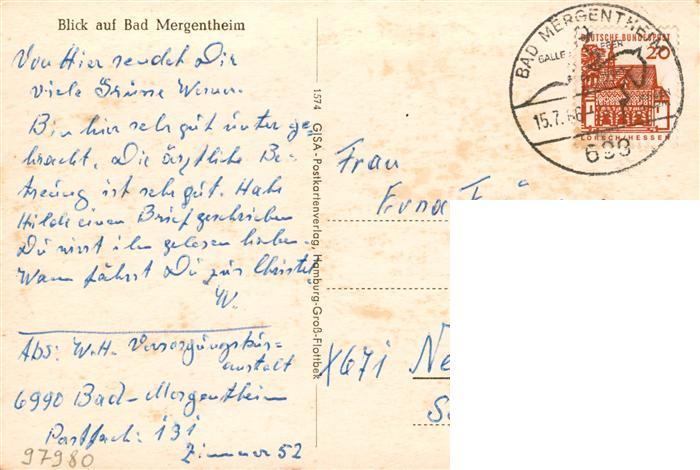 Blick auf Bad Mergentheim
Von Hier sendet Dir
viele Grüsse Werner.
Bin hier sehr gut unter ge-
bracht. Die ärztliche Be-
treuung ist sehr gut. Habe
Hilde einen Brief geschrieben
Du wirst ihn gelesen haben.
Wann fährst Du zur Christel
W.
Abs: W.H. Versorgungskur-
anstalt
6990 Bad-Mergentheim
Postfach: 131
Zimmer 52
97980
1574 GISA-Postkartenverlag, Hamburg-Groß-Flottbek
BAD MERGENTHEIM
15.7.66
699
DEUTSCHE BUNDESPOST
20
LORSCH/HESSEN
Frau
X671 Ne